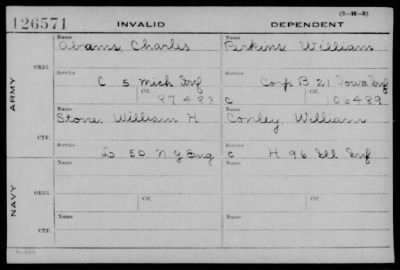 (3-16-3)
126571 INVALID DEPENDENT
Name Name
Abrams, Charles Perkins, William
ORIG.
Service Service
C 5 Mich Inf Corp B 21 Iowa Inf
Ctf. Ctf.
87483 C 106489
ARMY
Name Name
Stone, William H Conley, William
CTF.
Service Service
D 50 N Y Eng C H 96 Ill Inf
Name Name
ORIG.
Ctf. Ctf.
NAVY
Name Name
CTF.